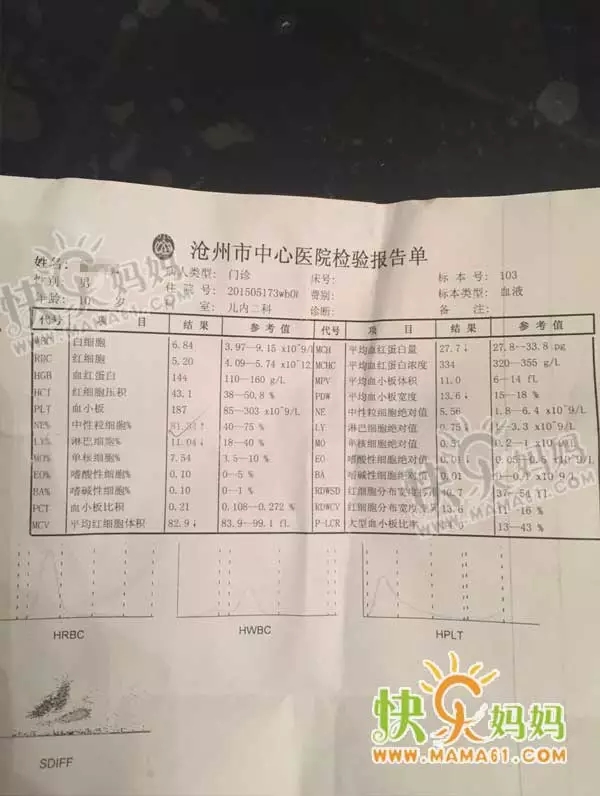 沧州市中心医院检验报告单
姓名:
病人类型: 门诊 床号: 标本号: 103
性别: 男 住院号: 201505173wb0 费别: 标本类型: 血液
年龄: 10 岁 科室: 儿内二科 诊断: 备注:
代号 项目 结果 参考值 代号 项目 结果 参考值
白细胞 6.84 3.97-9.15 x10^9/l MCH 平均血红蛋白量 27.7↓ 27.8--33.8 pg
RBC 红细胞 5.20 4.09--5.74 x10^12 MCHC 平均血红蛋白浓度 334 320--355 g/L
HGB 血红蛋白 144 110--160 g/L MPV 平均血小板体积 11.0 6--14 fL
HCT 红细胞压积 43.1 38--50.8 % PDW 平均血小板宽度 13.6↓ 15--18 %
PLT 血小板 187 85--303 x10^9/L NE 中性粒细胞绝对值 5.56 1.8--6.4 x10^9/L
NE% 中性粒细胞% ↑ 40--75 % LY 淋巴细胞绝对值 0.75↓
LY% 淋巴细胞% 11.04↓ 18--40 % MO 单核细胞绝对值 0.51
MO% 单核细胞% 7.54 3.5--10 % EO 嗜酸性细胞绝对值 0.01↓
EO% 嗜酸性细胞% 0.10 0--5 % BA 嗜碱性细胞绝对值 0.01
BA% 嗜碱性细胞% 0.10 0--1 % RDWSD 红细胞分布宽度 37--54 fl
PCT 血小板比积 0.21 0.108--0.272 % RDWCV 红细胞分布宽度 13.6 11--16 %
MCV 平均红细胞体积 82.9↓ 83.9--99.1 fL P-LCR 大型血小板比率 13--43 %
HRBC HWBC HPLT
SDIFF
快乐妈妈
WWW.MAMA61.COM
快乐妈妈
快乐妈妈
快乐妈妈